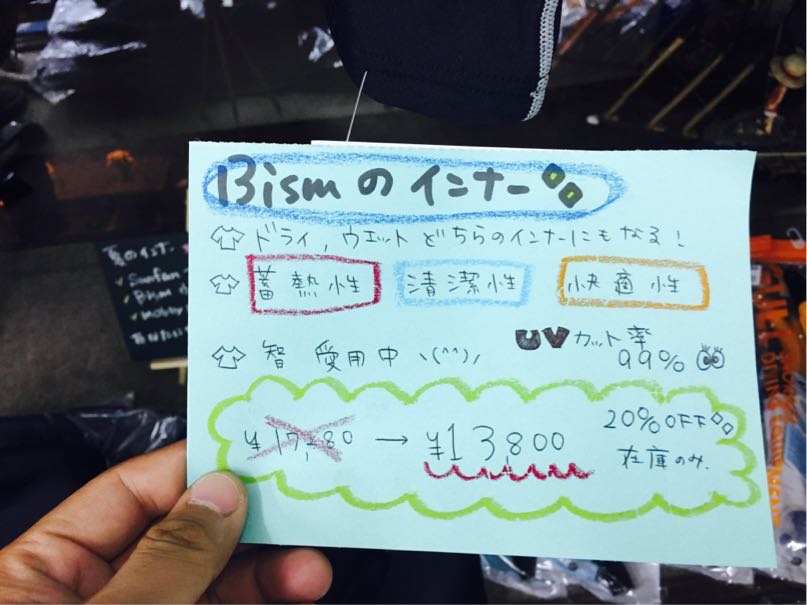 Bismのインナー
ドライ,ウエットどちらのインナーにもなる!
蓄熱性 清潔性 快適性
UVカット率
99%
智愛用中 ヽ(^^)ノ
¥17,280 → ¥13,800
20%OFF
在庫のみ.
夏のインナー
Sunfan
Bism
Mobby